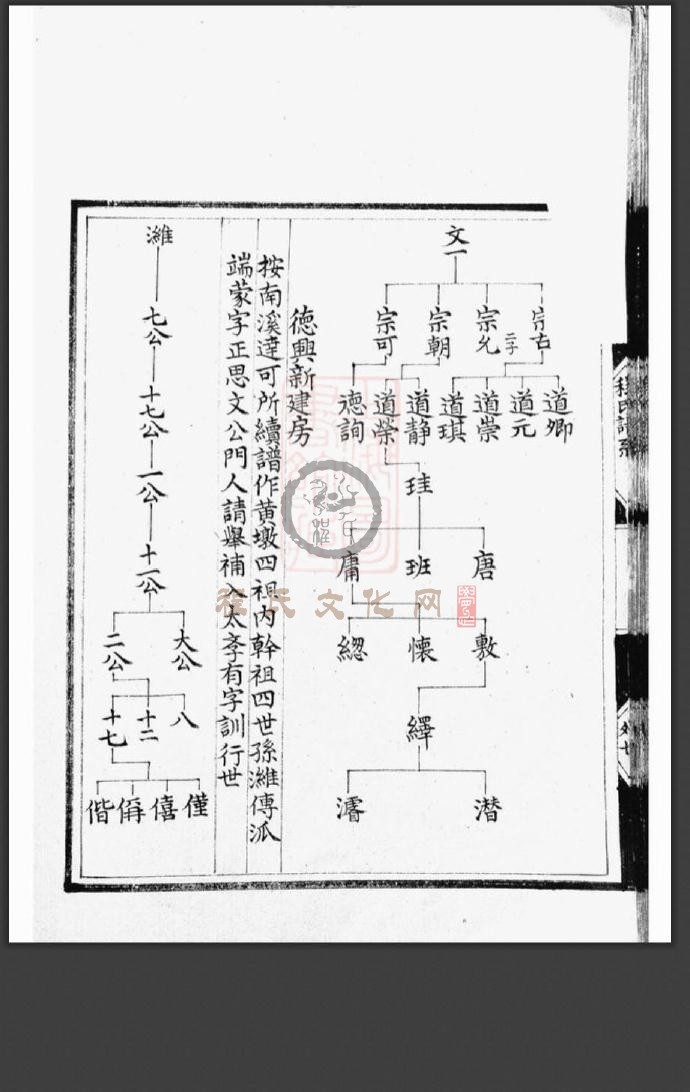 文一
宗古
宗允
宗朝
宗可
道卿
道元
道崇
道琪
道静
道榮
德詢
珪
唐
班
庸
敷
懷
緫
繹
潜
濬
德興新建房
按南溪達可所續譜作黄墩四祖内幹祖四世孫濰傳派
端蒙字正思文公門人請舉補入太斈有字訓行世
濰
七公
十七公
一公
十一公
大公
二公
八
十二
十七
僅
僖
偕
程氏文化网